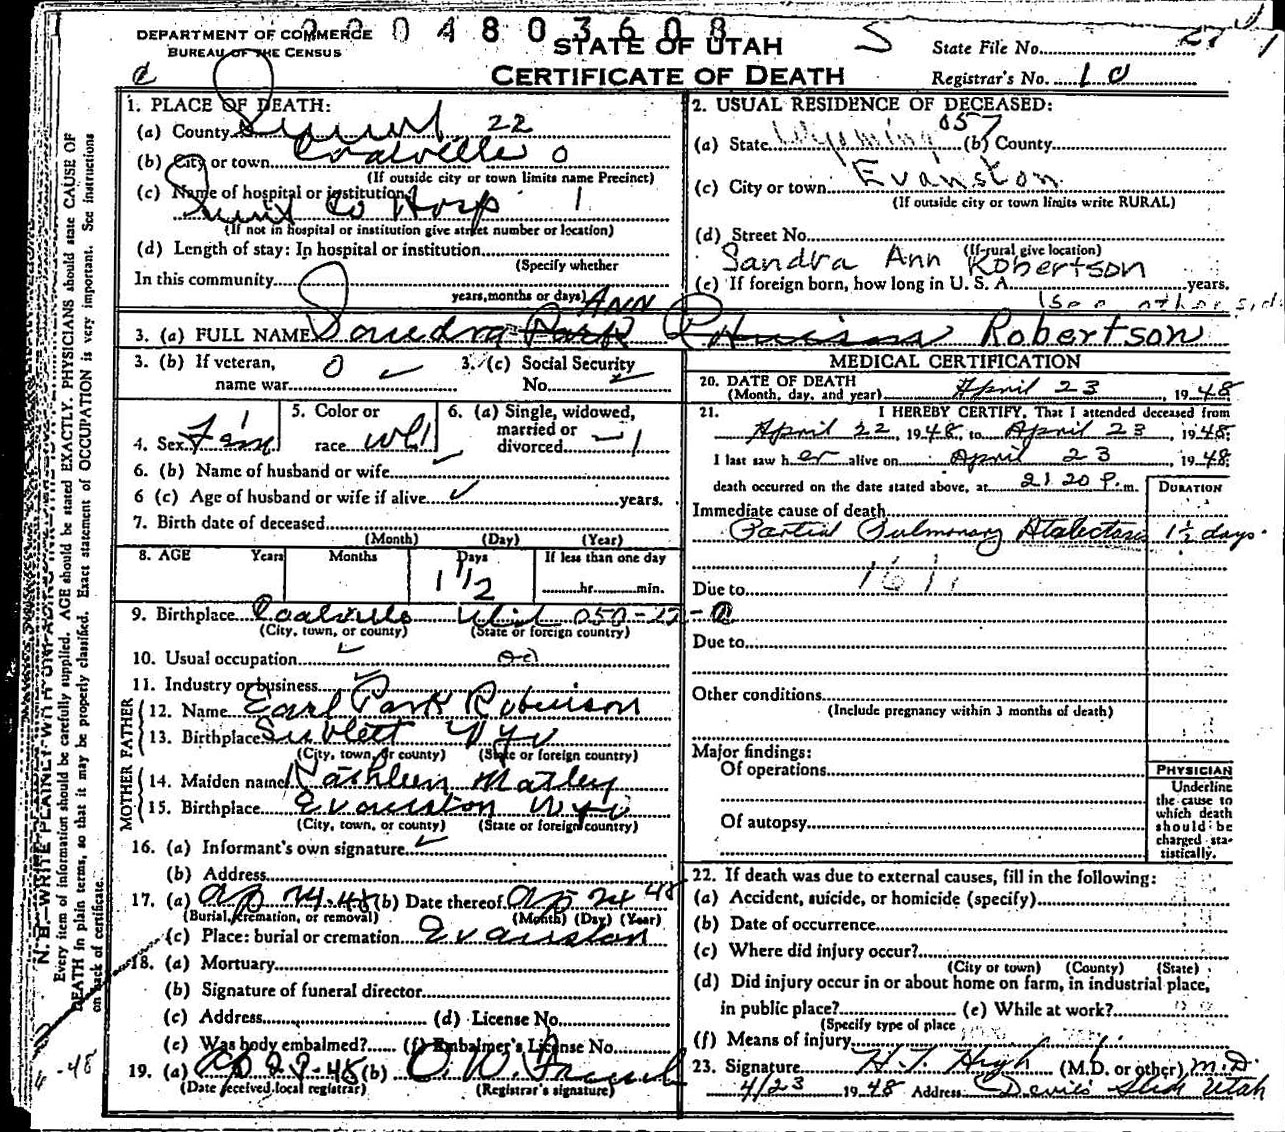 2 2 0 4 8 0 3 6 0 8
DEPARTMENT OF COMMERCE
BUREAU OF THE CENSUS
STATE OF UTAH
CERTIFICATE OF DEATH
S
State File No. 27
Registrar's No. 10
1. PLACE OF DEATH:
(a) County Summit 22
(b) City or town Coalville 0
(If outside city or town limits name Precinct)
(c) Name of hospital or institution:
Summit Co Hosp 1
(If not in hospital or institution give street number or location)
(d) Length of stay: In hospital or institution
(Specify whether
In this community
years, months or days)
2. USUAL RESIDENCE OF DECEASED:
(a) State Wyoming 057 (b) County
(c) City or town Evanston
(If outside city or town limits write RURAL)
(d) Street No.
(If rural give location)
Sandra Ann Robertson
(e) If foreign born, how long in U. S. A. years.
(see other sid
ANN
3. (a) FULL NAME Saundra Park Robertson
3. (b) If veteran, name war 0
3. (c) Social Security No.
4. Sex Fem 1
5. Color or race wh 1
6. (a) Single, widowed, married or divorced 1
6. (b) Name of husband or wife
6 (c) Age of husband or wife if alive years.
7. Birth date of deceased
(Month) (Day) (Year)
8. AGE Years Months Days If less than one day
1 1/2 hr. min.
9. Birthplace Coalville Utah 050-22-0
(City, town, or county) (State or foreign country)
10. Usual occupation
11. Industry or business
FATHER
12. Name Earl Park Robinson
13. Birthplace Sublett Wyo
(City, town, or county) (State or foreign country)
MOTHER
14. Maiden name Kathleen Matley
15. Birthplace Evanston Wyo
(City, town, or county) (State or foreign country)
16. (a) Informant's own signature
(b) Address
17. (a) Ap 24-48 (b) Date thereof Ap 24 48
(Burial, cremation, or removal) (Month) (Day) (Year)
(c) Place: burial or cremation Evanston
18. (a) Mortuary
(b) Signature of funeral director
(c) Address (d) License No.
(e) Was body embalmed? (f) Embalmer's License No.
19. (a) 48 (b) O. W.
(Date received local registrar) (Registrar's signature)
MEDICAL CERTIFICATION
20. DATE OF DEATH
(Month, day, and year) April 23, 1948
21. I HEREBY CERTIFY, That I attended deceased from
April 22, 1948, to April 23, 1948;
I last saw her alive on April 23, 1948;
death occurred on the date stated above, at 2:20 P. m.
DURATION
Immediate cause of death
Partial Pulmonary Atalectasis 1½ days
161
Due to
Due to
Other conditions
(Include pregnancy within 3 months of death)
Major findings:
Of operations
Of autopsy
PHYSICIAN
Underline
the cause to
which death
should be
charged sta-
tistically.
22. If death was due to external causes, fill in the following:
(a) Accident, suicide, or homicide (specify)
(b) Date of occurrence
(c) Where did injury occur?
(City or town) (County) (State)
(d) Did injury occur in or about home on farm, in industrial place,
in public place? (e) While at work?
(Specify type of place
(f) Means of injury
23. Signature H. T. High (M.D. or other) M.D.
4/23 1948 Address Devil's Slide Utah
Every item of information should be carefully supplied. AGE should be stated EXACTLY. PHYSICIANS should state CAUSE OF
DEATH in plain terms, so that it may be properly classified. Exact statement of OCCUPATION is very important. See instructions
on back of certificate.
-48